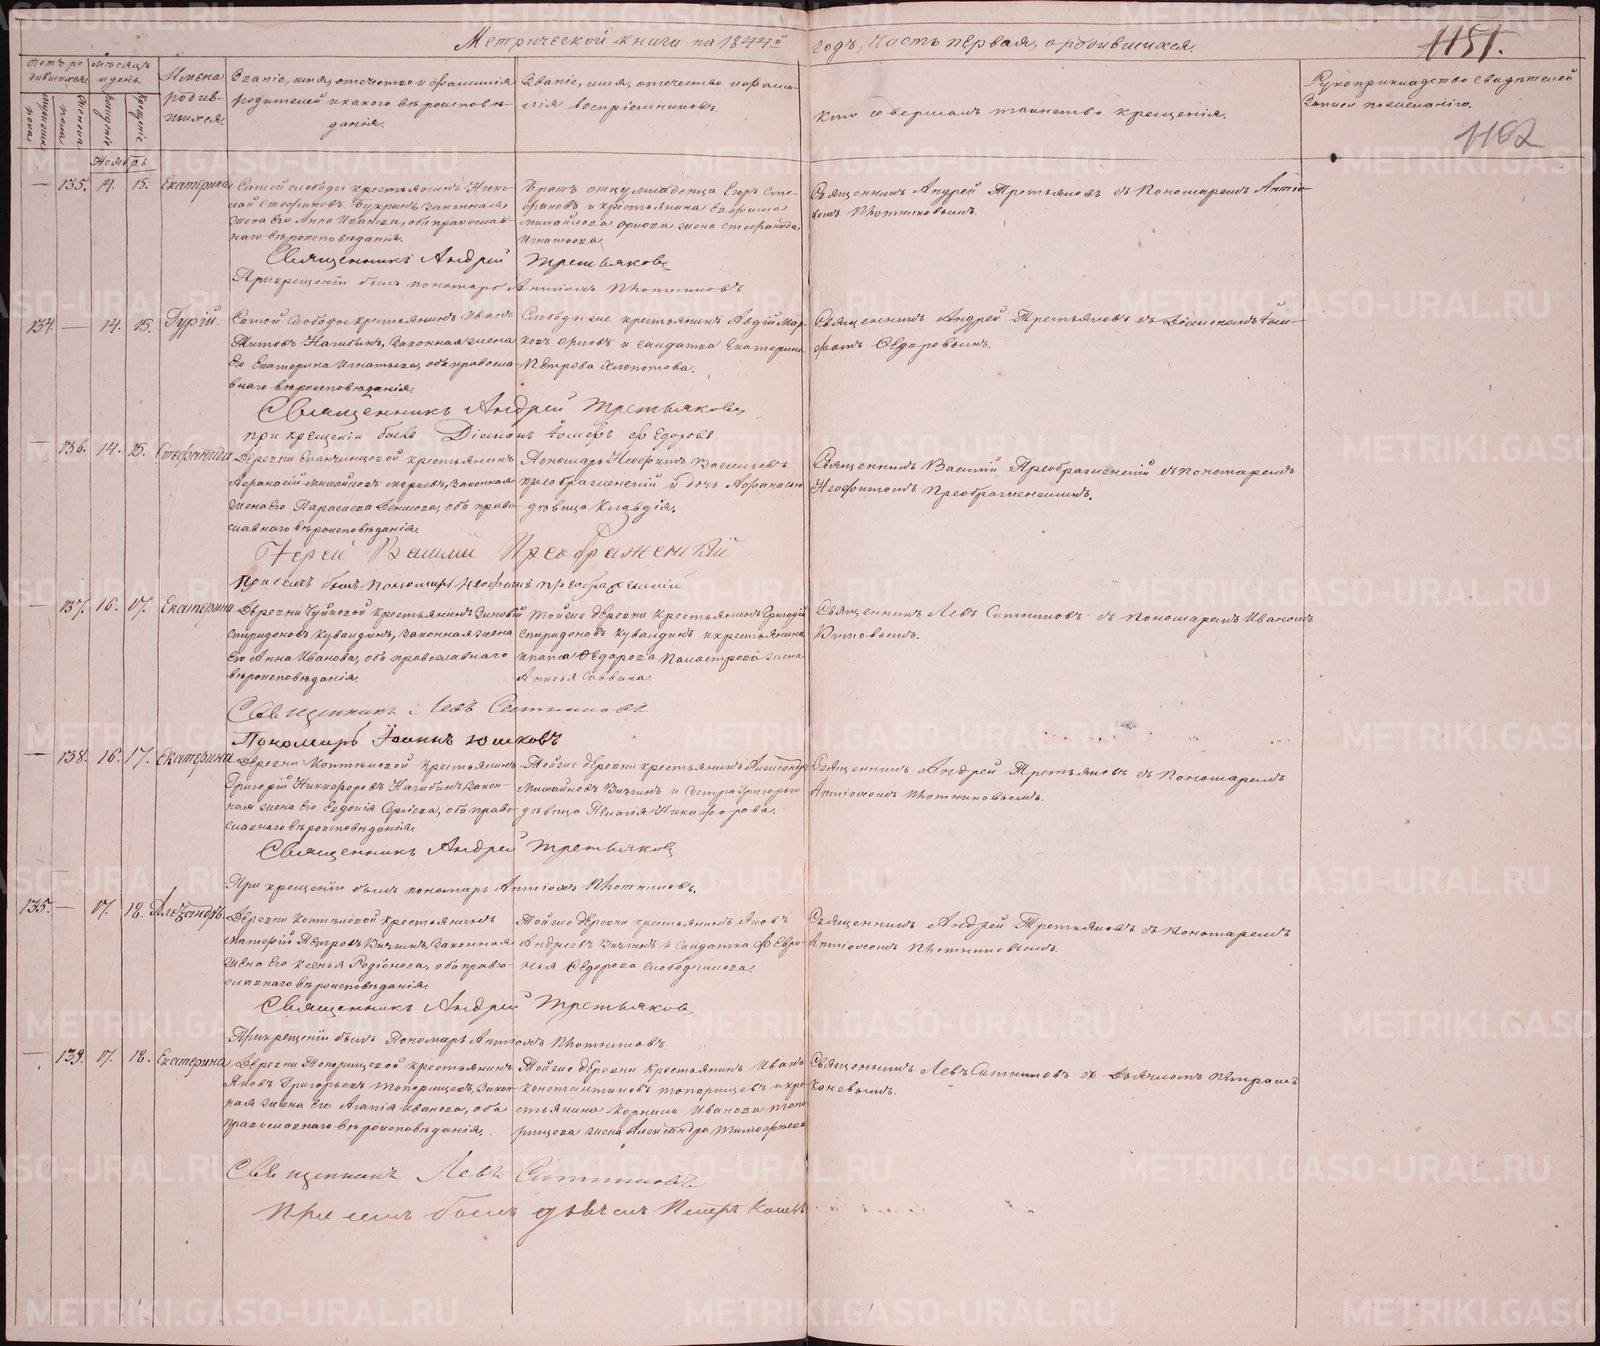 Метрической книги на 1844й годъ, Часть первая, о родившихся.
1151.
1102
Счетъ родившихся
Мѣсяцъ и день.
Имена родившихся.
Званіе, имя, отечество и фамилія родителей и какого вѣроисповѣданія.
Званіе, имя, отечество и фамилія воспріемниковъ.
Кто совершалъ таинство крещенія.
Рукоприкладство свидѣтелей записи по желанію.
мужеска пола
женска пола
рожденія
крещенія
Ноябрь
— 135. 14. 15. Екатерина
Самой слободы крестьянинъ Николай Стефановъ Букринъ, законная
жена его Анна Иванова, оба православнаго вѣроисповѣданія.
Братъ отцу младенца Егоръ Стефановъ и крестьянина Ефрема
Михайлова Орлова жена Стефанида
Игнатьева
Священникъ Андрей Третьяковъ съ Пономаремъ Антіохомъ Плотниковымъ.
Священникъ Андрей Третьяковъ
При крещеніи былъ пономарь Антіохъ Плотниковъ
134. — 14. 15. Гурій.
Самой Слободы крестьянинъ Иванъ
Титовъ Нагибинъ, законная жена
его Екатерина Игнатьева, оба православнаго вѣроисповѣданія.
Слободы же крестьянинъ Авдій Марковъ Орловъ и солдатка Екатерина
Петрова Хлопотова.
Священникъ Андрей Третьяковъ съ Діакономъ
Ѳедоровымъ.
Священникъ Андрей Третьяковъ
при крещеніи былъ Діаконъ Федоровъ
— 136. 14. 15. Стефанида
Деревни крестьянинъ
Афанасій Михайловъ Марковъ, законная
жена его Параскева Денисова, оба православнаго вѣроисповѣданія.
Пономарь Неофитъ Васильевъ
Преображенскій и дочь Афанасія
дѣвица Клавдія.
Священникъ Василій Преображенскій съ пономаремъ
Неофитомъ Преображенскимъ.
Іерей Василій Преображенскій
При семъ былъ пономарь Неофитъ Преображенскій
— 137. 16. 17. Екатерина
Деревни Чуйковой крестьянинъ Зиновій
Спиридоновъ Кувалдинъ, законная жена
его Анна Иванова, оба православнаго
вѣроисповѣданія.
Той же деревни крестьянинъ Григорій
Спиридоновъ Кувалдинъ и крестьянина
Игнатія Ѳедорова жена
Анисья Саввина.
Священникъ Левъ Ситниковъ съ пономаремъ Иваномъ
Священникъ Левъ Ситниковъ
Пономарь Іоаннъ Юшковъ
— 138. 16. 17. Екатерина
Деревни Коптѣловой крестьянинъ
Григорій Никифоровъ Нагибинъ, законная жена его Евдокія Сергіева, оба православнаго вѣроисповѣданія.
Той же деревни крестьянинъ Александръ
Михайловъ Вичинъ и сестра Григорья
дѣвица Пелагія Никифорова.
Священникъ Андрей Третьяковъ съ пономаремъ
Антіохомъ Плотниковымъ.
Священникъ Андрей Третьяковъ
При крещеніи былъ пономарь Антіохъ Плотниковъ.
135. — 17. 18. Александръ
Деревни Коптѣловой крестьянинъ
Матфей Петровъ Вичинъ, законная
жена его Ксенья Родіонова, оба православнаго вѣроисповѣданія.
Той же деревни крестьянинъ Яковъ
Андреевъ Вичинъ и солдатка Февронья Ѳедорова Слободчикова.
Священникъ Андрей Третьяковъ съ пономаремъ
Антіохомъ Плотниковымъ.
Священникъ Андрей Третьяковъ
При крещеніи былъ Пономарь Антіохъ Плотниковъ.
— 139. 17. 18. Екатерина
Деревни Топорищевой крестьянинъ
Яковъ Григорьевъ Топорищевъ, законная жена его Агапія Иванова, оба
православнаго вѣроисповѣданія.
Той же деревни крестьянинъ Иванъ
Константиновъ Топорищевъ и крестьянина Корнила Иванова Топорищева жена Александра Тимофѣева
Священникъ Левъ Ситниковъ съ дьячкомъ Петромъ
Коневымъ.
Священникъ Левъ Ситниковъ
При семъ былъ дьячекъ Петръ Коневъ
METRIKI.GASO-URAL.RU